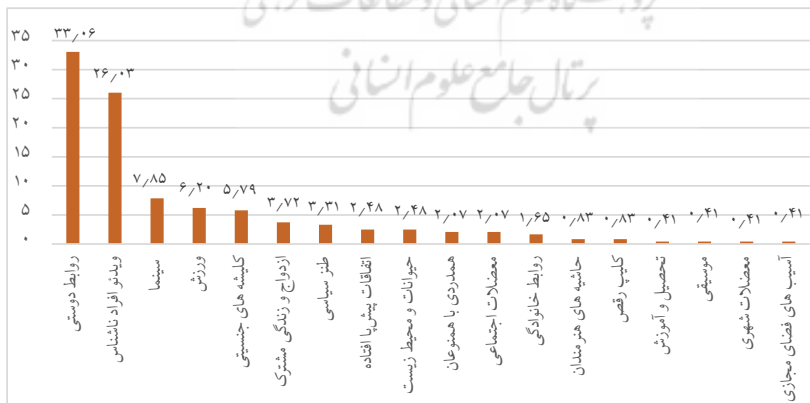 پرتال جامع علوم انسانی
۳۵
۳۰
۲۵
۲۰
۱۵
۱۰
۵
۰
۳۳٫۰۶
۲۶٫۰۳
۷٫۸۵
۶٫۲۰
۵٫۷۹
۳٫۷۲
۳٫۳۱
۲٫۴۸
۲٫۴۸
۲٫۰۷
۲٫۰۷
۱٫۶۵
۰٫۸۳
۰٫۸۳
۰٫۴۱
۰٫۴۱
۰٫۴۱
۰٫۴۱
روابط دوستی
ویدئو افراد ناشناس
سینما
ورزش
کلیشه های جنسیتی
ازدواج و زندگی مشترک
طنز سیاسی
اتفاقات پیش پا افتاده
حیوانات و محیط زیست
همدردی با همنوعان
معضلات اجتماعی
روابط خانوادگی
حاشیه های هنرمندان
کلیپ رقص
تحصیل و آموزش
موسیقی
معضلات شهری
آسیب های فضای مجازی